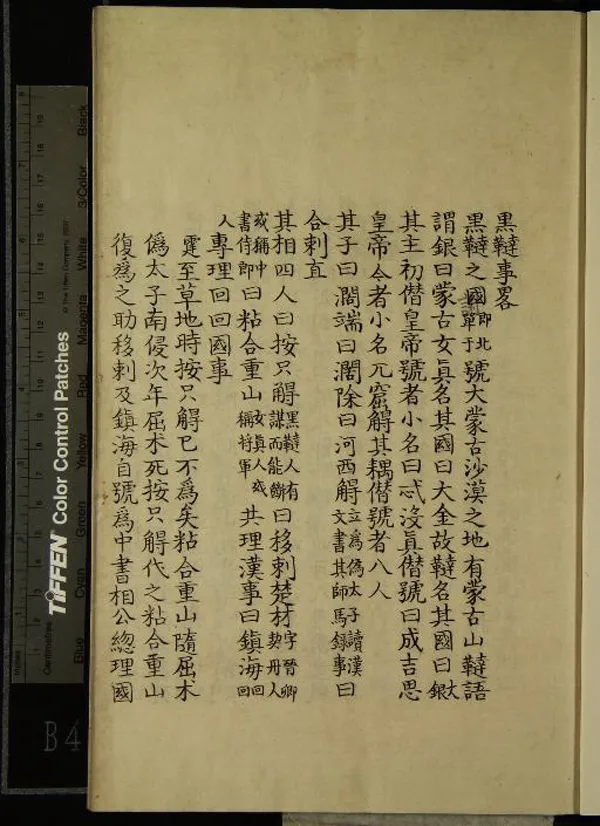 黑韃事畧
黑韃之國即北單于號大蒙古沙漠之地有蒙古山韃語
謂銀曰蒙古女真名其國曰大金故韃名其國曰大銀
其主初僭皇帝號者小名曰忒没真僭號曰成吉思
皇帝今者小名兀窟䚟其耦僭號者八人
其子曰濶端曰濶除曰河西䚟立為偽太子讀漢文書其師馬録事曰
合剌直
其相四人曰按只䚟黑韃人有謀而能斷曰移剌楚材字晉卿契丹人
或稱中書侍郎曰粘合重山女真人或稱將軍共理漢事曰鎮海回回
人專理回回國事
霆至草地時按只䚟已不為矣粘合重山隨屈朮
偽太子南侵次年屈朮死按只䚟代之粘合重山
復為之助移剌及鎮海自號為中書相公總理國
TIFFEN Color Control Patches
© The Tiffen Company, 2007
Inches
Centimetres
Blue
Cyan
Green
Yellow
Red
Magenta
White
3/Color
Black
B4